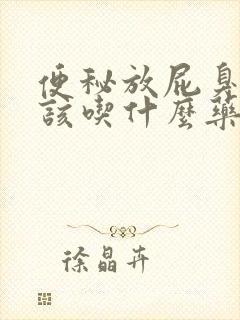 便秘放屁臭
該喫什麼藥
徐晶卉